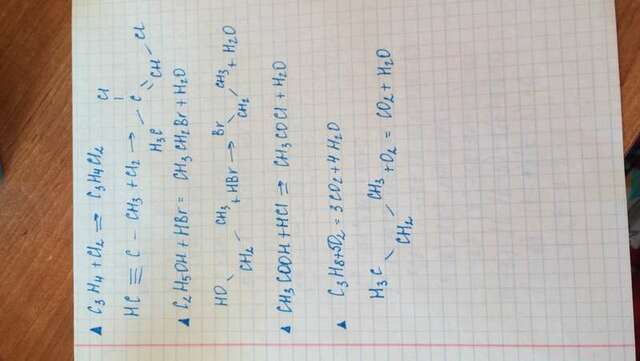 ▲ C₃H₄ + Cl₂ ⇌ C₃H₄Cl₂
Cl
HC ≡ C – CH₃ + Cl₂ → H₃C C CH Cl
▲ C₂H₅OH + HBr = CH₃CH₂Br + H₂O
HO CH₂ CH₃ + HBr → Br CH₂ CH₃ + H₂O
▲ CH₃COOH + HCl ⇌ CH₃COCl + H₂O
▲ C₃H₈+5O₂ = 3CO₂ + 4H₂O
H₃C CH₂ CH₃ + O₂ = CO₂ + H₂O